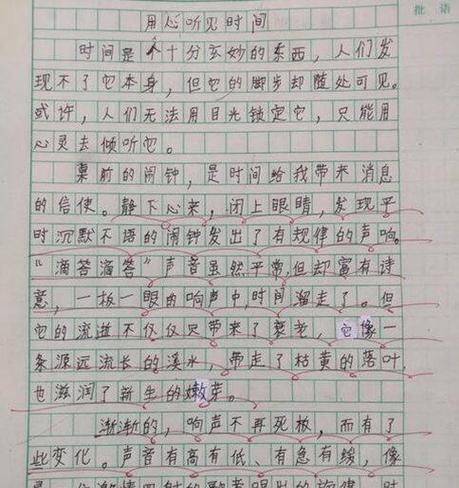 批语
用心听见时间
时间是个十分玄妙的东西，人们发
现不了它本身，但它的脚步却随处可见。
或许，人们无法用目光锁定它，只能用
心灵去倾听它。
桌前的闹钟，是时间给我带来消息
的信使。静下心来，闭上眼睛，发现平
时沉默不语的闹钟发出了有规律的声响。
“滴答滴答”声音虽然平常，但却富有诗
意，一板一眼的响声中，时间溜走了。但
它的流逝不仅仅只带来了衰老，它像一
条源远流长的溪水，带走了枯黄的落叶，
也滋润了新生的嫩芽。
渐渐的，响声不再死板，而有了
些变化。声音有高有低、有急有缓，像